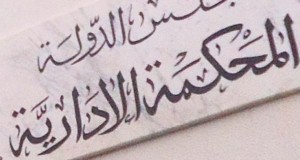 مجلس الدّولة
المحكمة الإداريّة